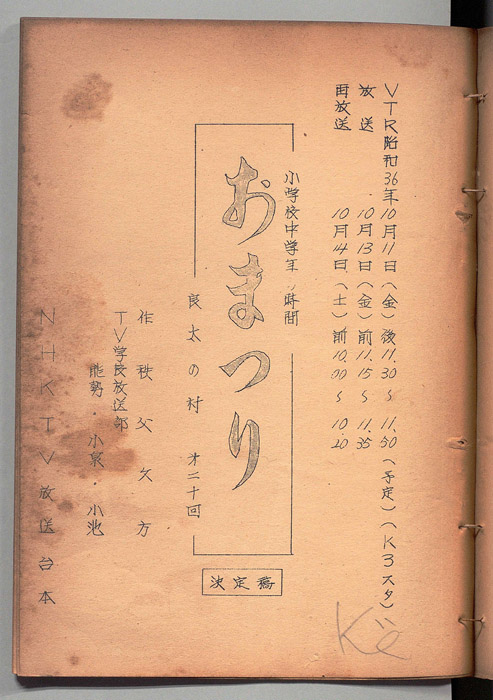 VTR昭和36年10月11日(金)後11.30~11.50(予定)(K3スタ)
放送 10月13日(金)前11.15~11.35
再放送 10月14日(土)前10.00~10.20
小学校中学年ノ時間
おまつり
良太の村 才二十回
決定稿
作 秩父久方
TV学校放送部
能勢・小泉・小池
NHKTV放送台本